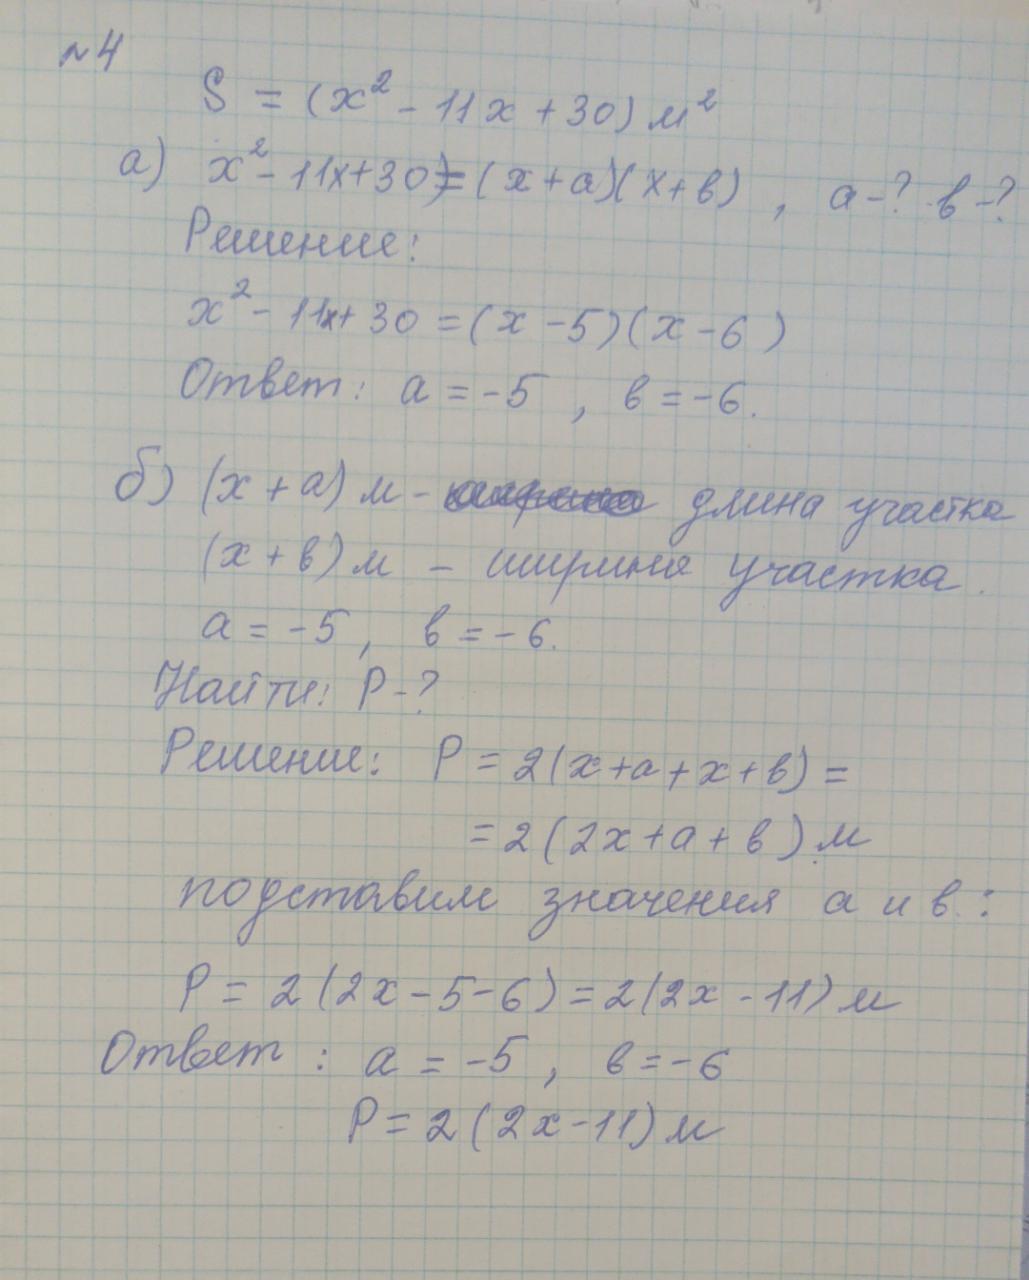 №4
S = (x² - 11x + 30) м²
а) x² - 11x + 30) = (x + a)(x + в) , a - ? в - ?
Решение:
x² - 11x + 30 = (x - 5)(x - 6)
Ответ: a = -5 , в = -6.
б) (x + a) м - длина участка
(x + в) м - ширина участка.
a = -5 , в = -6.
Найти: P - ?
Решение: P = 2(x + a + x + в) =
= 2(2x + a + в) м
подставим значения a и в :
P = 2(2x - 5 - 6) = 2(2x - 11) м
Ответ : a = -5 , в = -6
P = 2(2x - 11) м